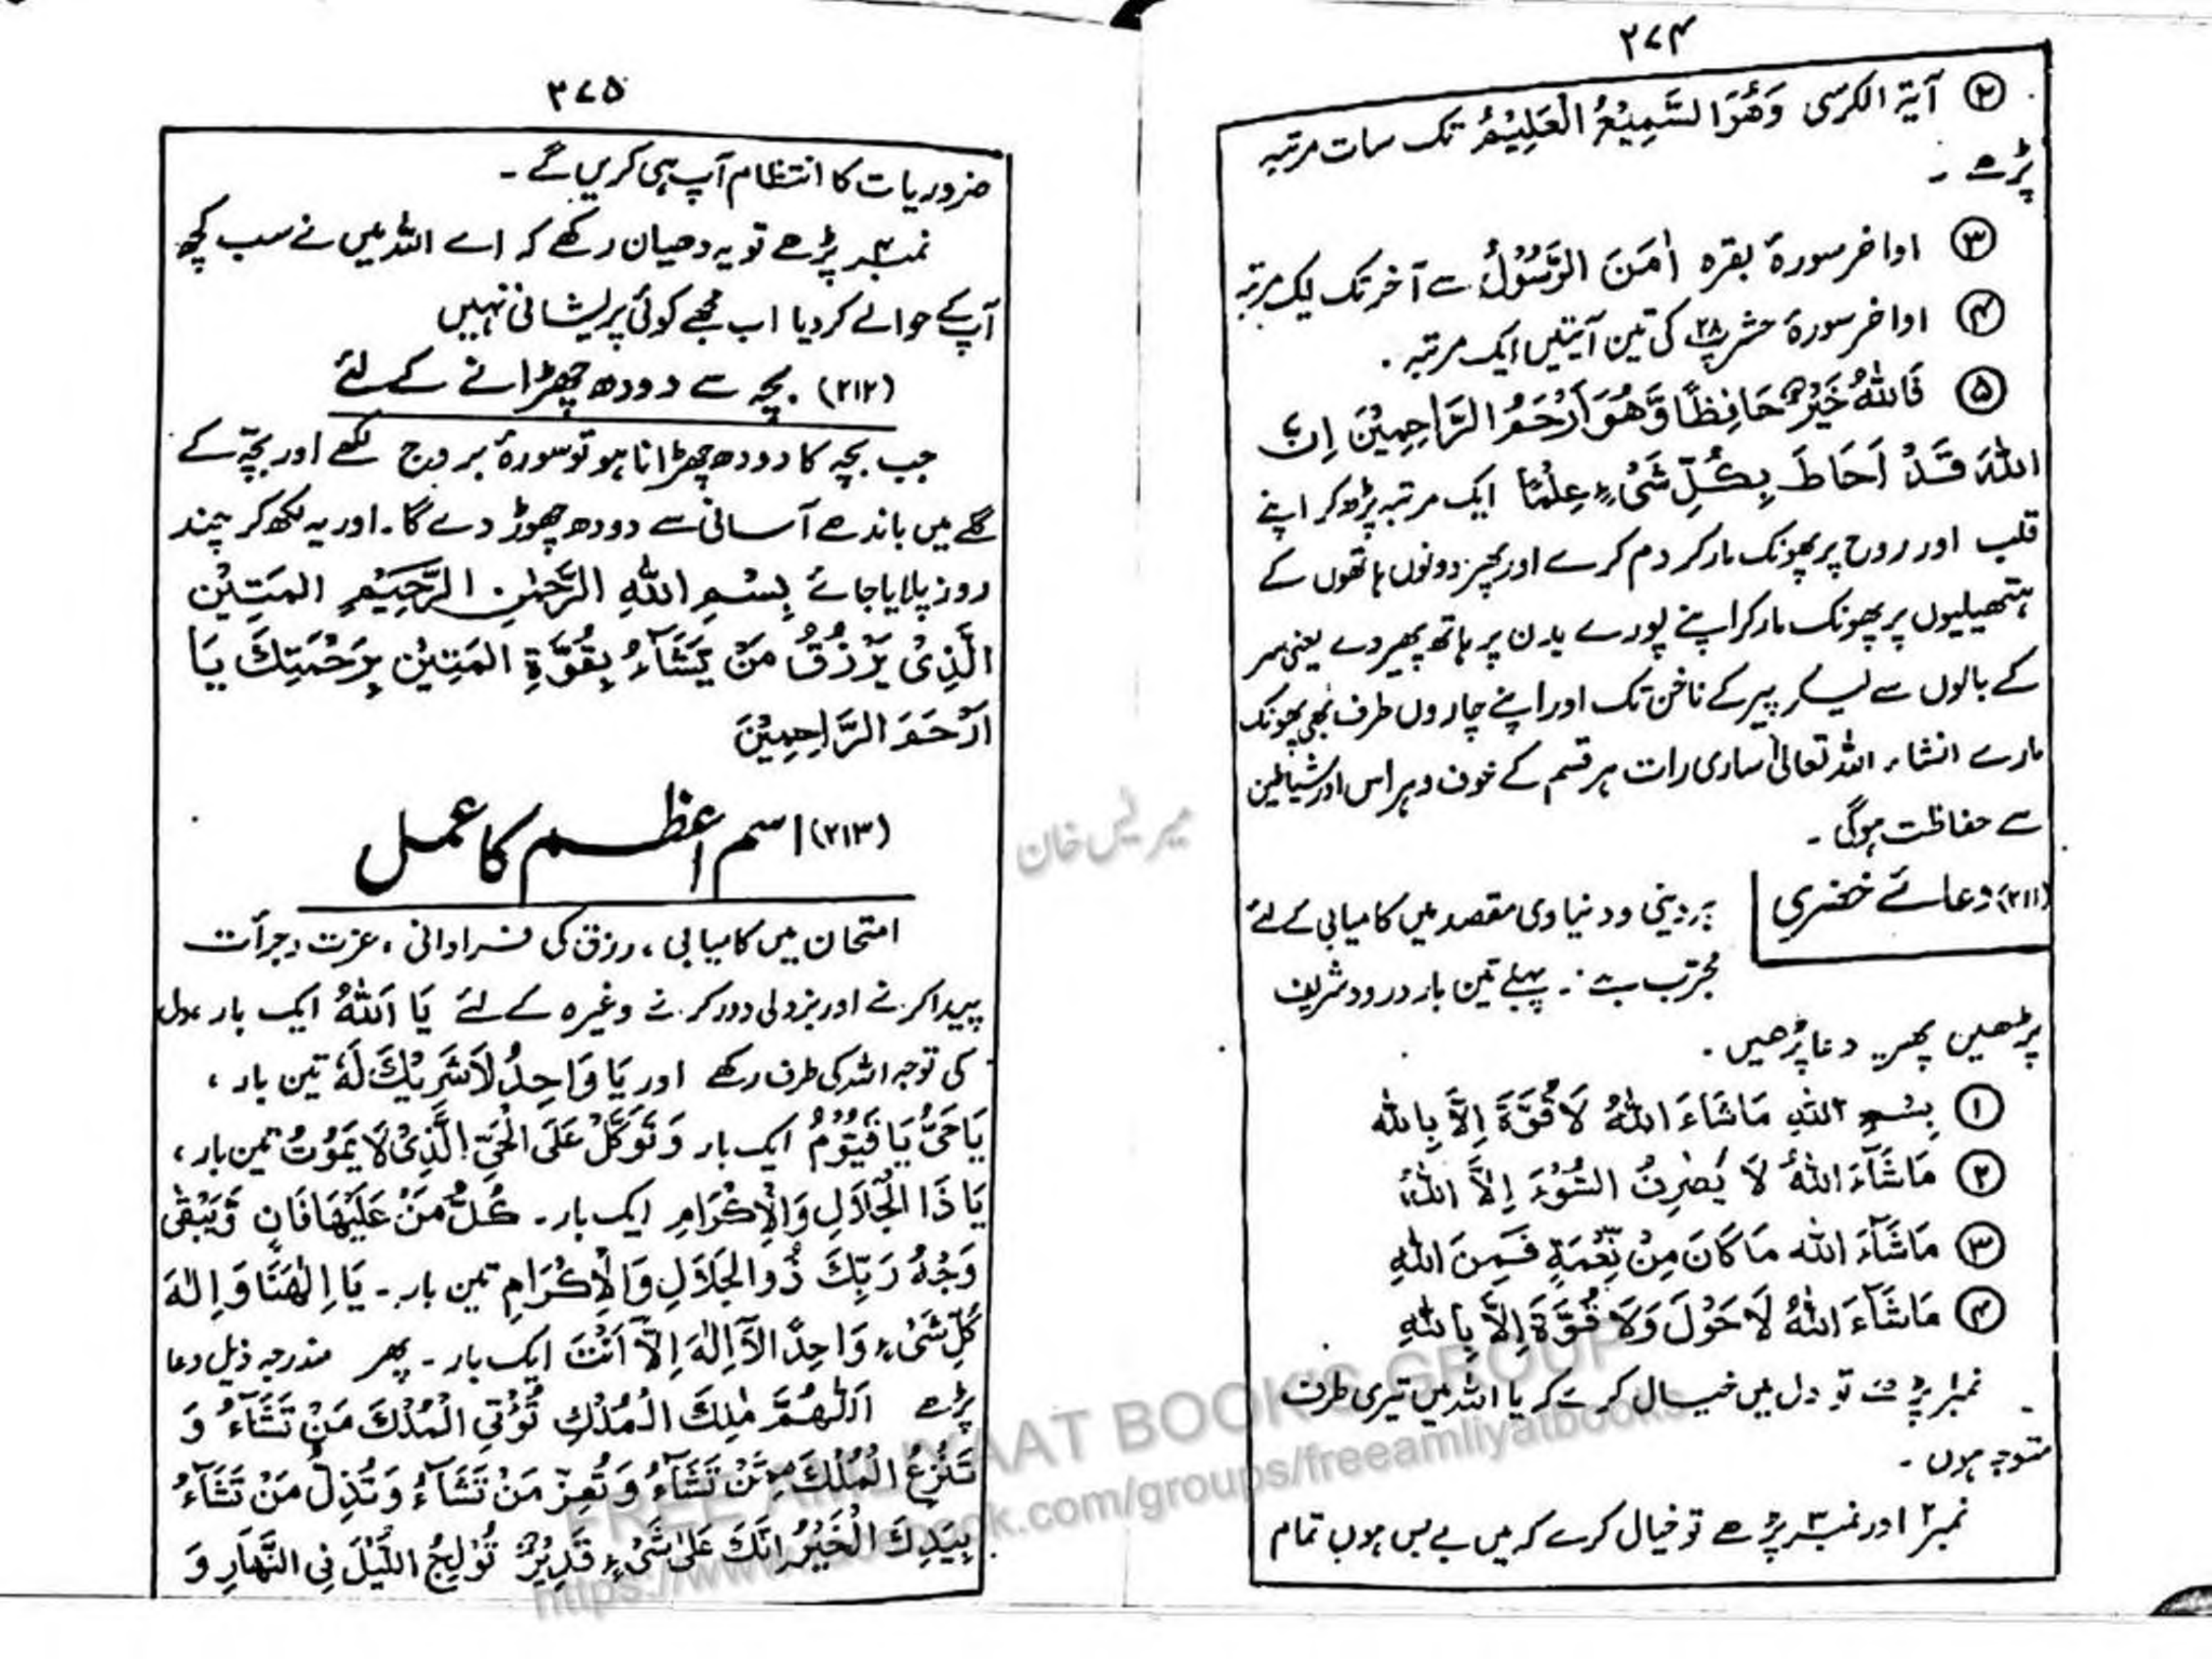 ۳۷۴
② آیۃ الکرسی وَھُوَ السَّمِیْعُ الْعَلِیْمُ تک سات مرتبہ
پڑھے ۔
③ اواخر سورۂ بقرہ اٰمَنَ الرَّسُوْلُ سے آخر تک ایک مرتبہ
④ اواخر سورۂ حشر پ۲۸ کی تین آیتیں ایک مرتبہ ۔
⑤ فَاللّٰهُ خَیْرٌ حَافِظًا وَّھُوَ اَرْحَمُ الرَّاحِمِیْنَ اِنَّ
اللّٰهَ قَدْ اَحَاطَ بِكُلِّ شَیْءٍ عِلْمًا ایک مرتبہ پڑھ کر اپنے
قلب اور روح پر پھونک مار کر دم کرے اور پھر دونوں ہاتھوں کے
ہتھیلیوں پر پھونک مار کر اپنے پورے بدن پر ہاتھ پھیر دے یعنی سر
کے بالوں سے لیکر پیر کے ناخن تک اور اپنے چاروں طرف بھی پھونک
مارے انشاء اللہ تعالیٰ ساری رات ہر قسم کے خوف و ہراس اور شیاطین
سے حفاظت ہوگی ۔
(۲۱۱) دعائے خضری
ہر دینی و دنیاوی مقصد میں کامیابی کے لئے
مجرّب ہے ۔ پہلے تین بار درود شریف
پڑھیں پھر یہ دعا پڑھیں ۔
① بِسْمِ اللّٰهِ مَاشَاءَ اللّٰهُ لَا قُوَّةَ اِلَّا بِاللّٰه
② مَاشَآءَ اللّٰهُ لَا یَصْرِفُ السُّوْءَ اِلَّا اللّٰهُ
③ مَاشَآءَ اللّٰه مَا کَانَ مِنْ نِّعْمَةٍ فَمِنَ اللّٰهِ
④ مَاشَآءَ اللّٰهُ لَا حَوْلَ وَلَا قُوَّةَ اِلَّا بِاللّٰهِ
نمبر۱ پڑھے تو دل میں خیال کرے کہ یا اللہ میں تیری طرف
متوجہ ہوں ۔
نمبر۲ اور نمبر۳ پڑھے تو خیال کرے کہ میں بے بس ہوں تمام
۳۷۵
ضروریات کا انتظام آپ ہی کریں گے ۔
نمبر۴ پڑھے تو یہ دھیان رکھے کہ اے اللہ میں نے سب کچھ
آپ کے حوالے کر دیا اب مجھے کوئی پریشانی نہیں
(۲۱۲) بچہ سے دودھ چھڑانے کے لئے
جب بچہ کا دودھ چھڑانا ہو تو سورۂ بروج لکھے اور بچّہ کے
گلے میں باندھے آسانی سے دودھ چھوڑ دے گا ۔ اور یہ لکھ کر چند
روز پلایا جائے بِسْمِ اللّٰهِ الرَّحْمٰنِ الرَّحِیْمِ المَتِیْن
الَّذِیْ یَرْزُقُ مَنْ یَّشَآءُ بِقُوَّةِ المَتِیْنِ بِرَحْمَتِكَ یَا
اَرْحَمَ الرَّاحِمِیْنَ
(۲۱۳) اسم اعظم کا عمل
امتحان میں کامیابی ، رزق کی فراوانی ، عزت و جرأت
پیدا کرنے اور بزدلی دور کرنے وغیرہ کے لئے یَا اَللّٰهُ ایک بار ، دل
کی توجہ اللہ کی طرف رکھے اور یَا وَاحِدُ لَاشَرِیْكَ لَهٗ تین بار ،
یَاحَیُّ یَا قَیُّوْمُ ایک بار وَتَوَكَّلْ عَلَی الْحَیِّ الَّذِیْ لَا یَمُوْتُ تین بار ،
یَا ذَا الْجَلَالِ وَالْاِكْرَامِ ایک بار ۔ كُلُّ مَنْ عَلَیْهَا فَانٍ وَّیَبْقٰی
وَجْهُ رَبِّكَ ذُوالجَلَالِ وَالْاِكْرَامِ تین بار ۔ یَا اِلٰهَنَا وَاِلٰهَ
كُلِّ شَیْءٍ وَاحِدًا لَّآ اِلٰهَ اِلَّآ اَنْتَ ایک بار ۔ پھر مندرجہ ذیل دعا
پڑھے اَللّٰهُمَّ مٰلِكَ الْمُلْكِ تُؤْتِی الْمُلْكَ مَنْ تَشَآءُ وَ
تَنْزِعُ الْمُلْكَ مِمَّنْ تَشَآءُ وَتُعِزُّ مَنْ تَشَآءُ وَتُذِلُّ مَنْ تَشَآءُ
بِیَدِكَ الْخَیْرُ اِنَّكَ عَلٰی شَیْءٍ قَدِیْرٌ تُوْلِجُ اللَّیْلَ فِی النَّهَارِ وَ
FREE AMLIYAAT BOOK'S GROUP
https://www.facebook.com/groups/freeamliyatbooks